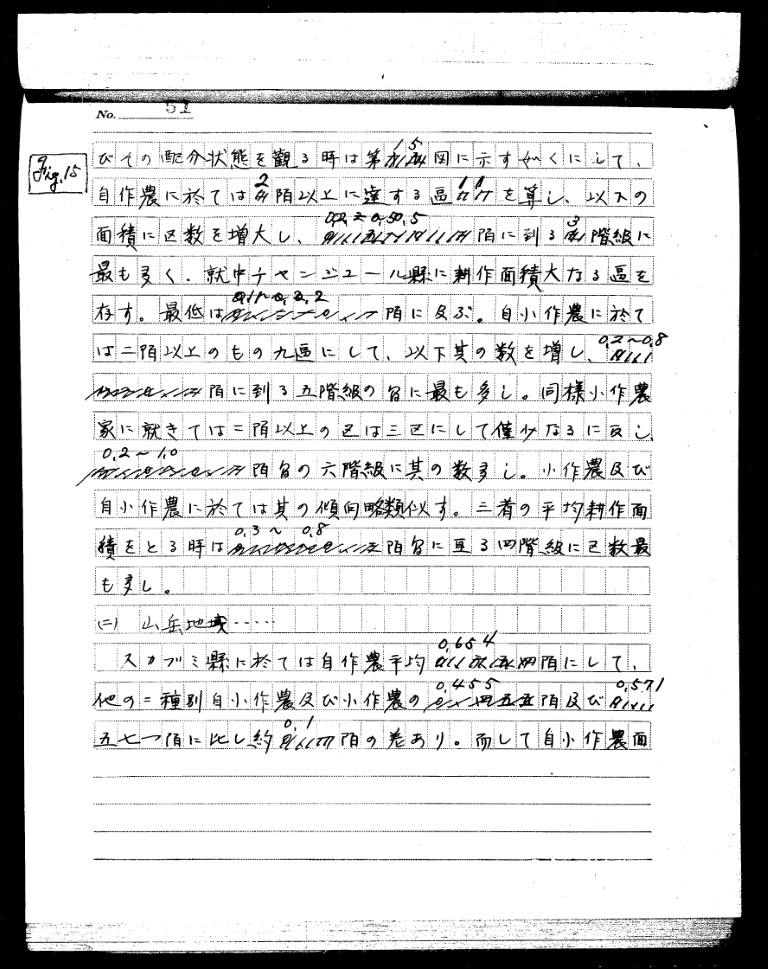 No. 51
Fig.15
びその配分状態を觀る時は第15図に示す如くにして、
自作農に於ては2陌以上に達する區11を算し、以下の
面積に区数を増大し、0.2~0.5陌に到る3階級に
最も多く、就中チャンジュール縣に耕作面積大なる區を
存す。最低は0.1~0.2陌に及ぶ。自小作農に於て
は二陌以上のもの九區にして、以下其の数を増し、0.2~0.8
陌に到る五階級の旨に最も多し。同様小作農
家に就きては二陌以上の区は三区にして僅少なるに反し、
0.2~1.0陌旨の六階級に其の数多し。小作農及び
自小作農に於ては其の傾向略類似す。三者の平均耕作面
積をとる時は0.3~0.8陌旨に亘る四階級に区数最
も多し。
(二) 山岳地域‥‥
スカブミ縣に於ては自作農平均0.654陌にして、
他の二種別自小作農及び小作農の0.455陌及び0.571
陌に比し約0.1陌の差あり。而して自小作農面